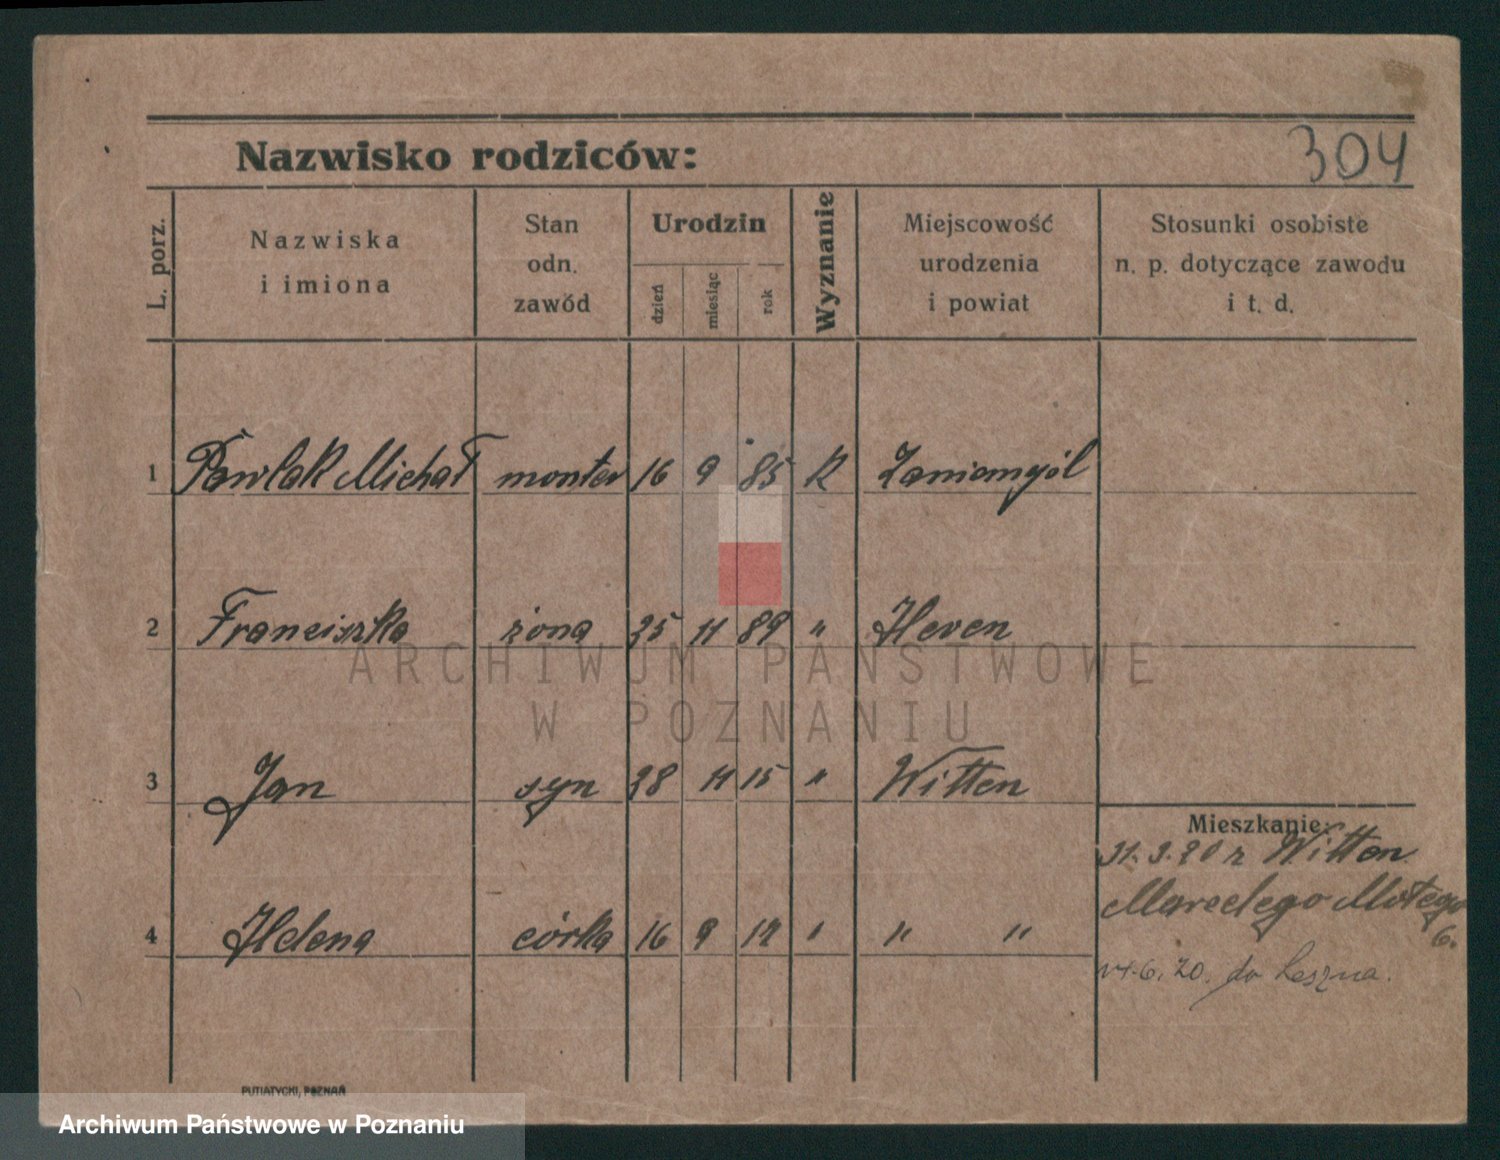 304
Nazwisko rodziców:
L. porz.
Nazwiska
i imiona
Stan
odn.
zawód
Urodzin
dzień
miesiąc
rok
Wyznanie
Miejscowość
urodzenia
i powiat
Stosunki osobiste
n. p. dotyczące zawodu
i t. d.
1 Pawlak Michał monter 16 9 85 K Zaniemyśl
2 Franciszka żona 25 11 89 " Heven
3 Jan syn 28 11 15 " Witten
4 Helena córka 16 9 12 " " "
Mieszkanie:
31.3.20 z Witten
Marcelego Motego
6.
do Leszna.
PUTIATYCKI, POZNAŃ
ARCHIWUM PAŃSTWOWE
W POZNANIU
Archiwum Państwowe w Poznaniu